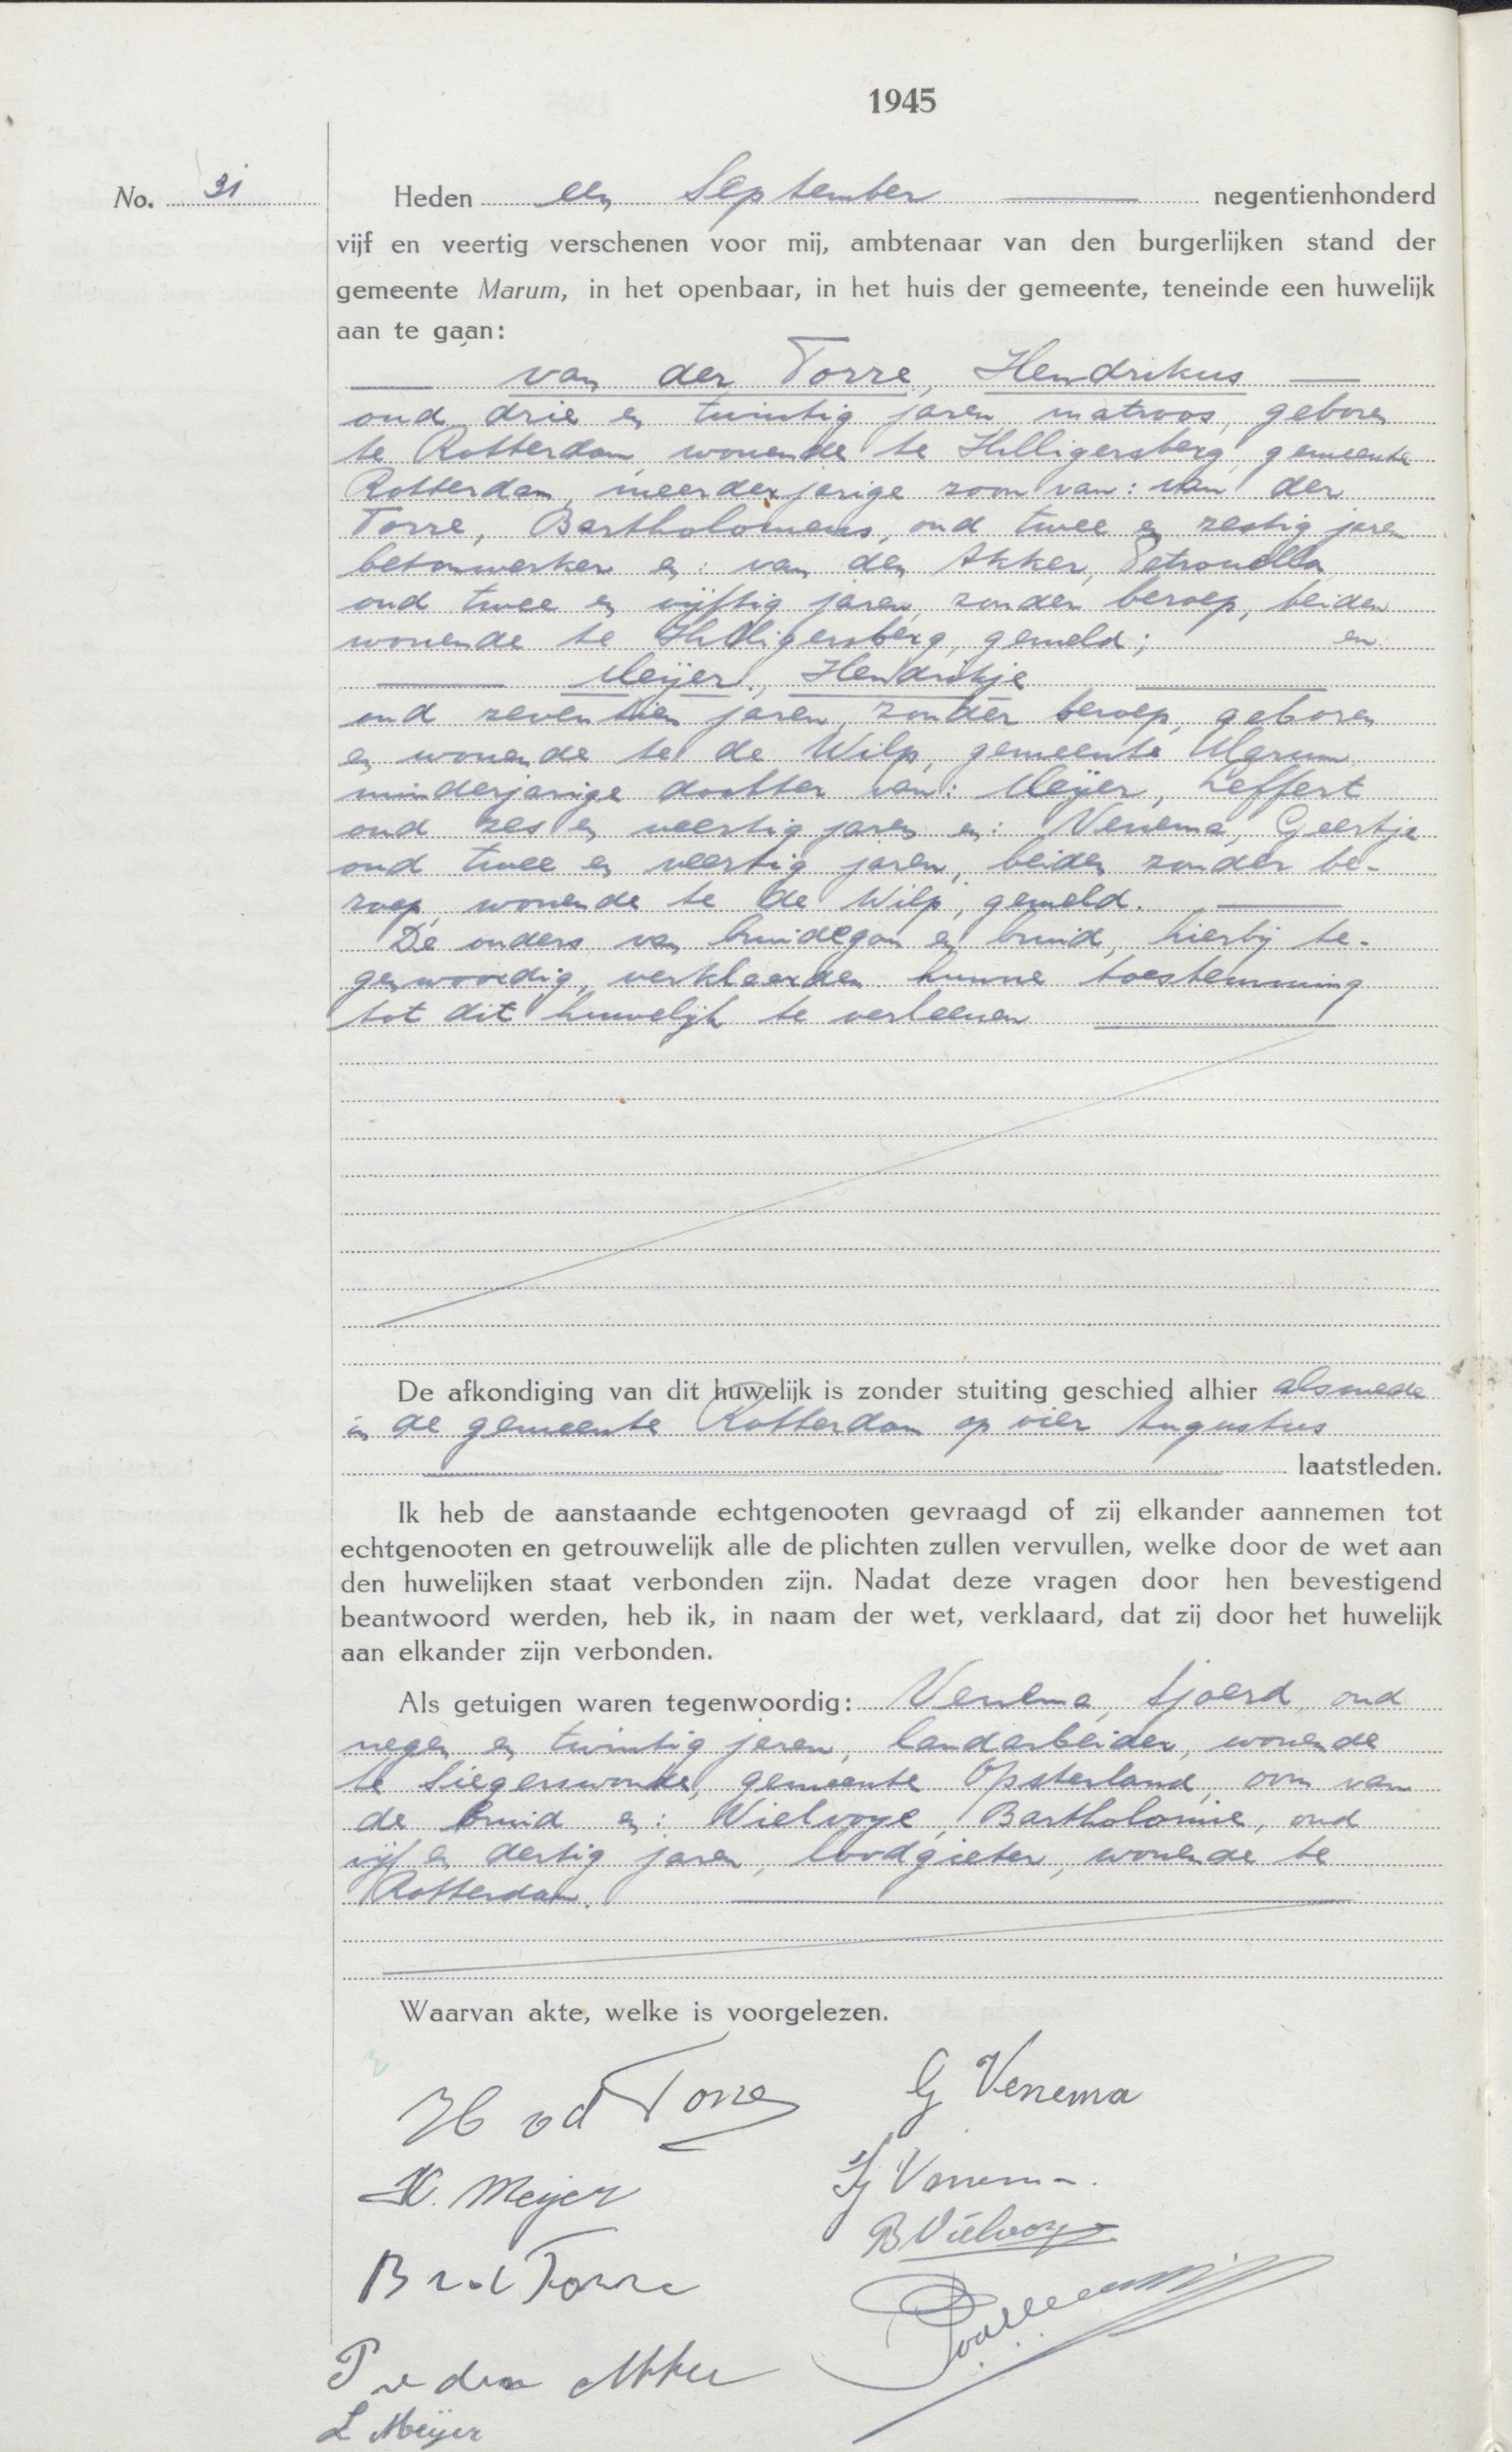 1945
No. 31
Heden een September negentienhonderd
vijf en veertig verschenen voor mij, ambtenaar van den burgerlijken stand der
gemeente Marum, in het openbaar, in het huis der gemeente, teneinde een huwelijk
aan te gaan:
van der Torre, Hendrikus
oud drie en twintig jaren, matroos, geboren
te Rotterdam, wonende te Hilligersberg, gemeente
Rotterdam, meerderjarige zoon van: van der
Torre, Bartholomeus, oud twee en zestig jaren
betonwerker en: van den Akker, Petronella
oud twee en vijftig jaren, zonder beroep, beiden
wonende te Hilligersberg, gemeld; en
Meijer, Hendrikje
oud zeventien jaren, zonder beroep, geboren
en wonende te de Wilp, gemeente Marum,
minderjarige dochter van: Meijer, Leffert
oud zes en veertig jaren en: Venema, Geertje
oud twee en veertig jaren, beiden zonder be-
roep, wonende te de Wilp, gemeld.
De ouders van bruidegom en bruid, hierbij te-
genwoordig, verklaarden hunne toestemming
tot dit huwelijk te verleenen
De afkondiging van dit huwelijk is zonder stuiting geschied alhier alsmede
in de gemeente Rotterdam op vier Augustus
laatstleden.
Ik heb de aanstaande echtgenooten gevraagd of zij elkander aannemen tot
echtgenooten en getrouwelijk alle de plichten zullen vervullen, welke door de wet aan
den huwelijken staat verbonden zijn. Nadat deze vragen door hen bevestigend
beantwoord werden, heb ik, in naam der wet, verklaard, dat zij door het huwelijk
aan elkander zijn verbonden.
Als getuigen waren tegenwoordig: Venema, Sjoerd, oud
negen en twintig jaren, landarbeider, wonende
te Siegerswoude, gemeente Opsterland, oom van
de bruid en: Vielvoye, Bartholomie, oud
vijf en dertig jaren, loodgieter, wonende te
Rotterdam.
Waarvan akte, welke is voorgelezen.
H vd Torre
G Venema
H. Meijer
Sj Venema.
B Vielvoye
B v d Torre
P v den Akker
L Meijer